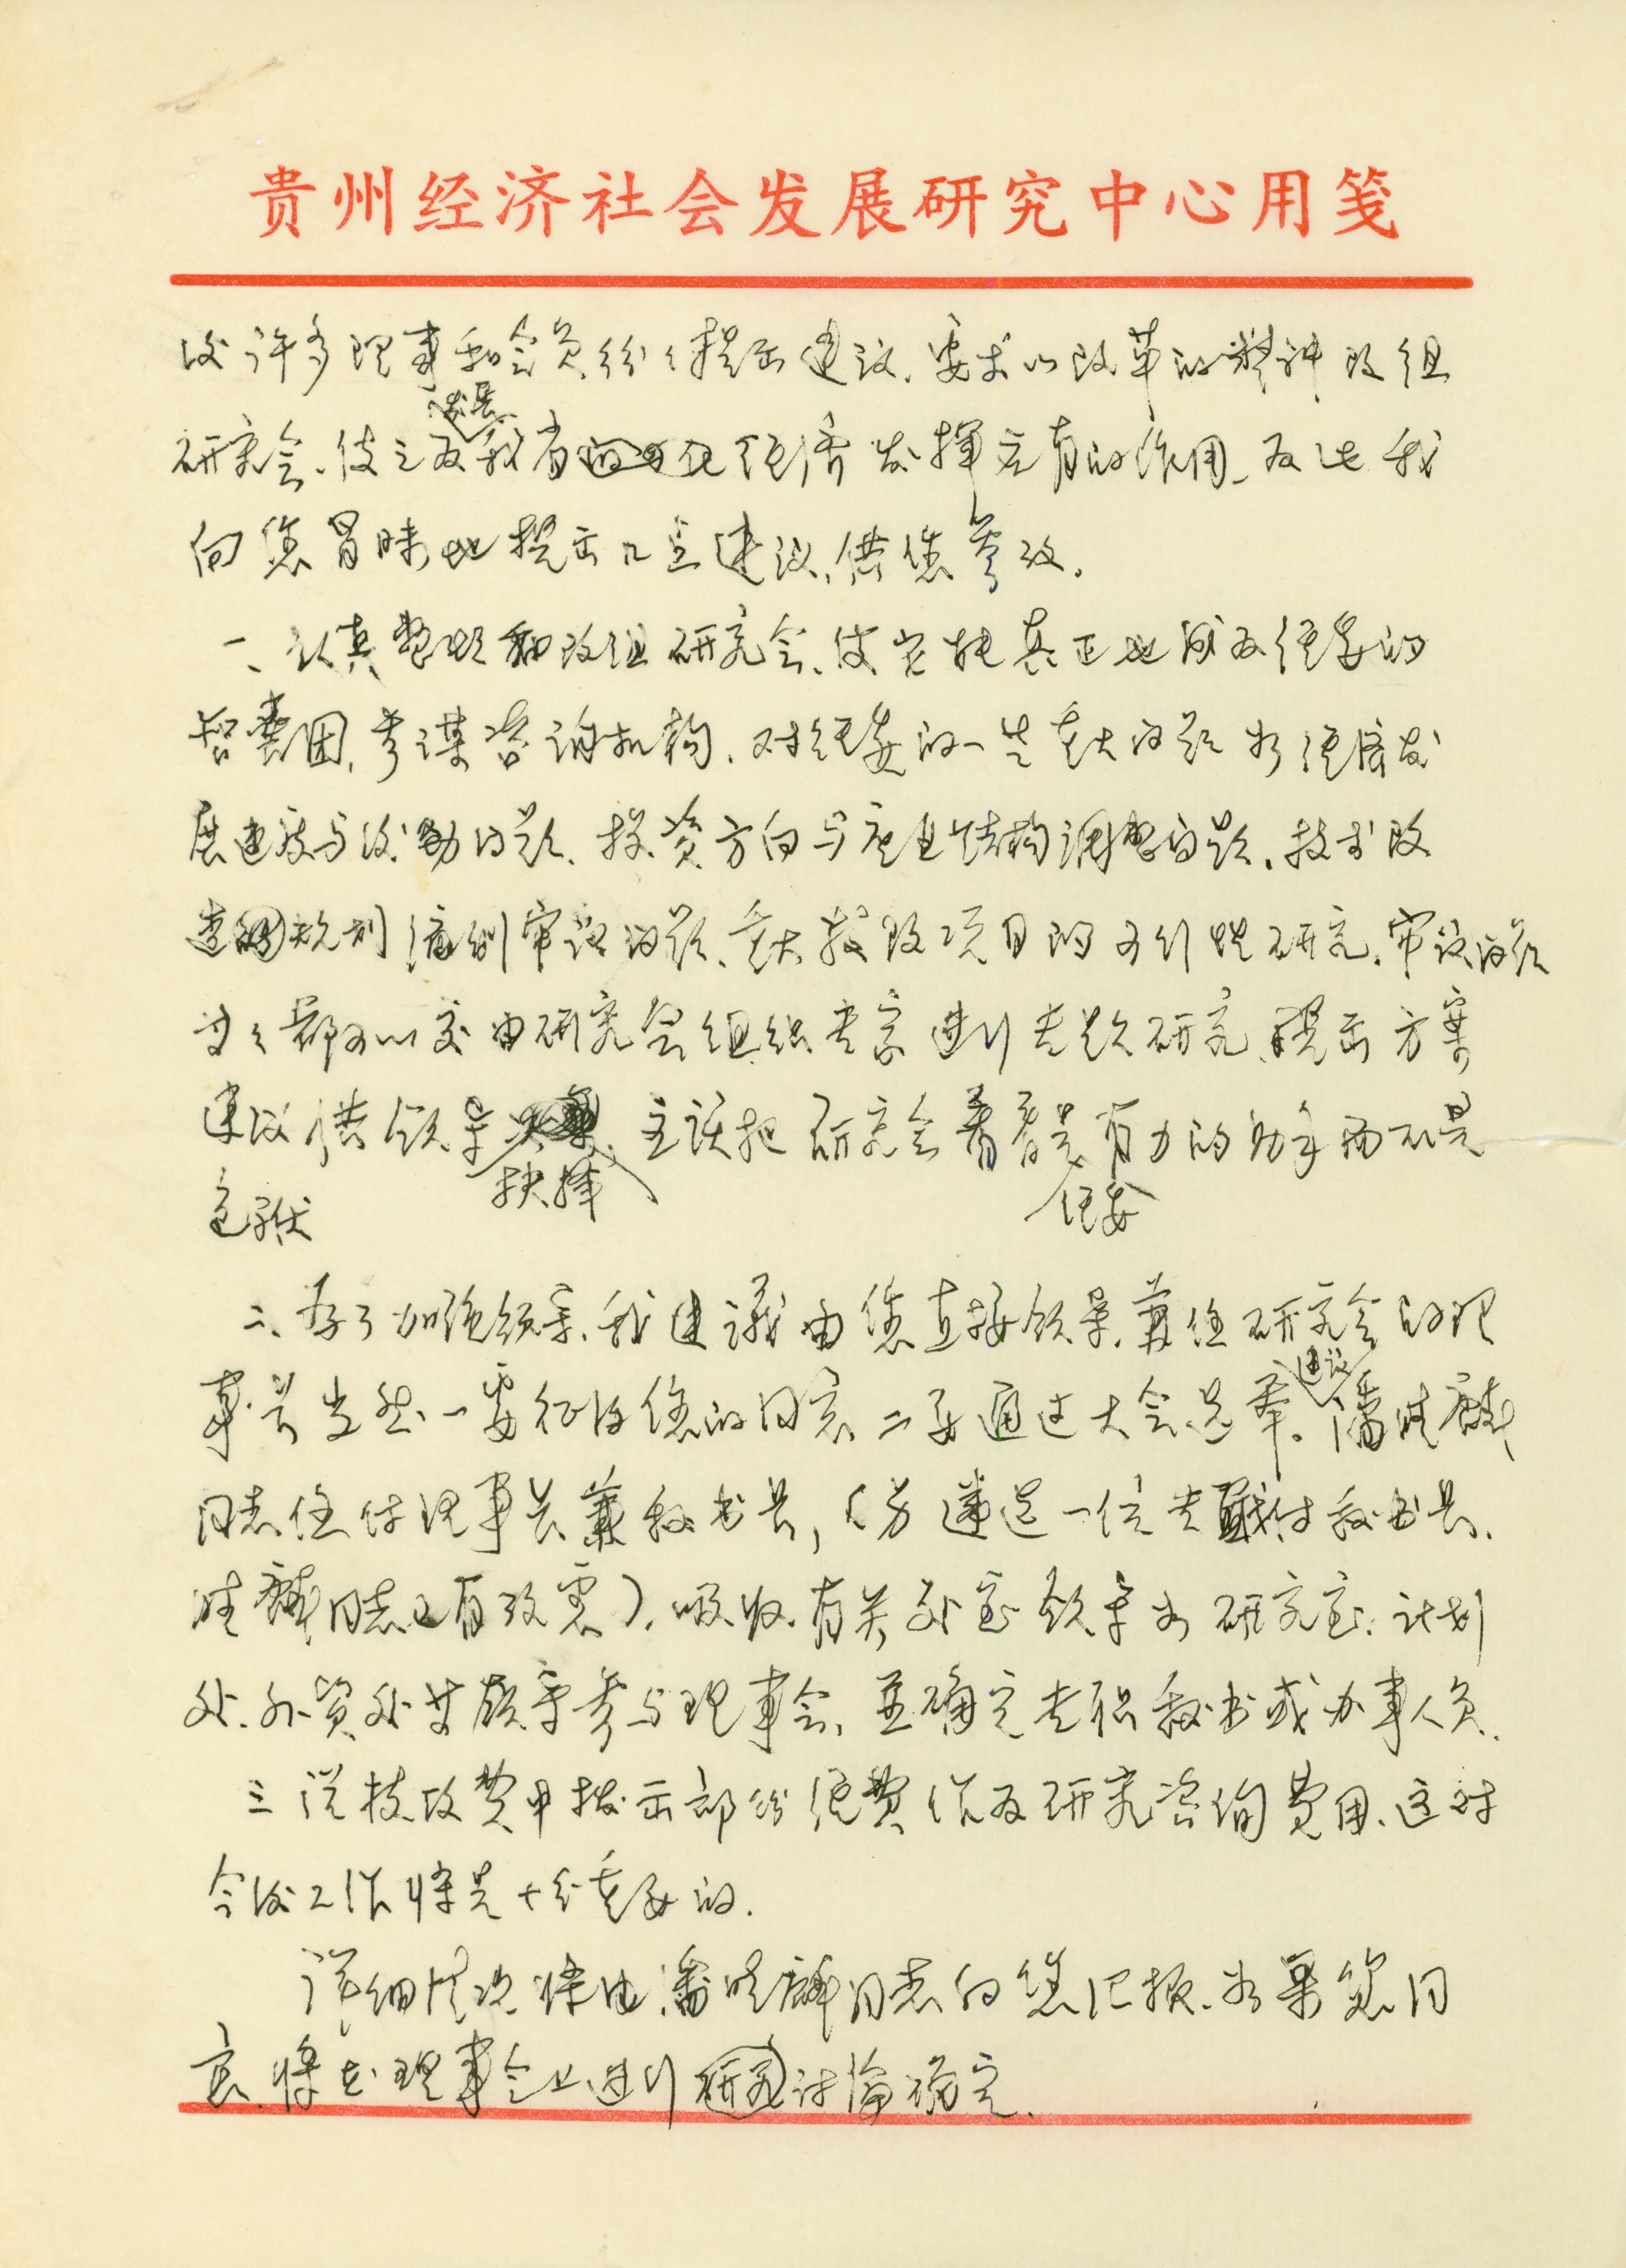 贵州经济社会发展研究中心用笺
后许多理事和会员纷纷提出建议，要求以改革的精神改组
发展
研究会，使之为我省经济发挥应有的作用，为此我
向您冒昧地提出几点建议，供您参改。
一、认真整顿和改组研究会，使它能真正地成为经委的
智囊团，参谋咨询机构，对经委的一些重大问题如经济发
展速度与后劲问题、投资方向与产业结构调整问题、技术改
造规划编制审议问题、重大技改项目的可行性研究、审议问题
等等都可以交由研究会组织专家进行专题研究，提出方案
建议供领导，主该把研究会看着是有力的助手而不是
抉择 经委
包袱
二、为了加强领导，我建议由您直接领导，兼任研究会的理
建议
事长当然一要征得您的同意，二要通过大会选举。潘
同志任付理事长兼秘书长，（另遴选一位专职付秘书长，
同志已有考虑），吸收有关处室领导如研究室、计划
处、外资处等领导参与理事会，並确定专职秘书或办事人员，
三、从技改费中拨出部份经费作为研究咨询费用，这对
今后工作将是十分重要的。
详细情况将由潘同志向您汇报，如果您同
意，将在理事会上进行研究讨论确定。